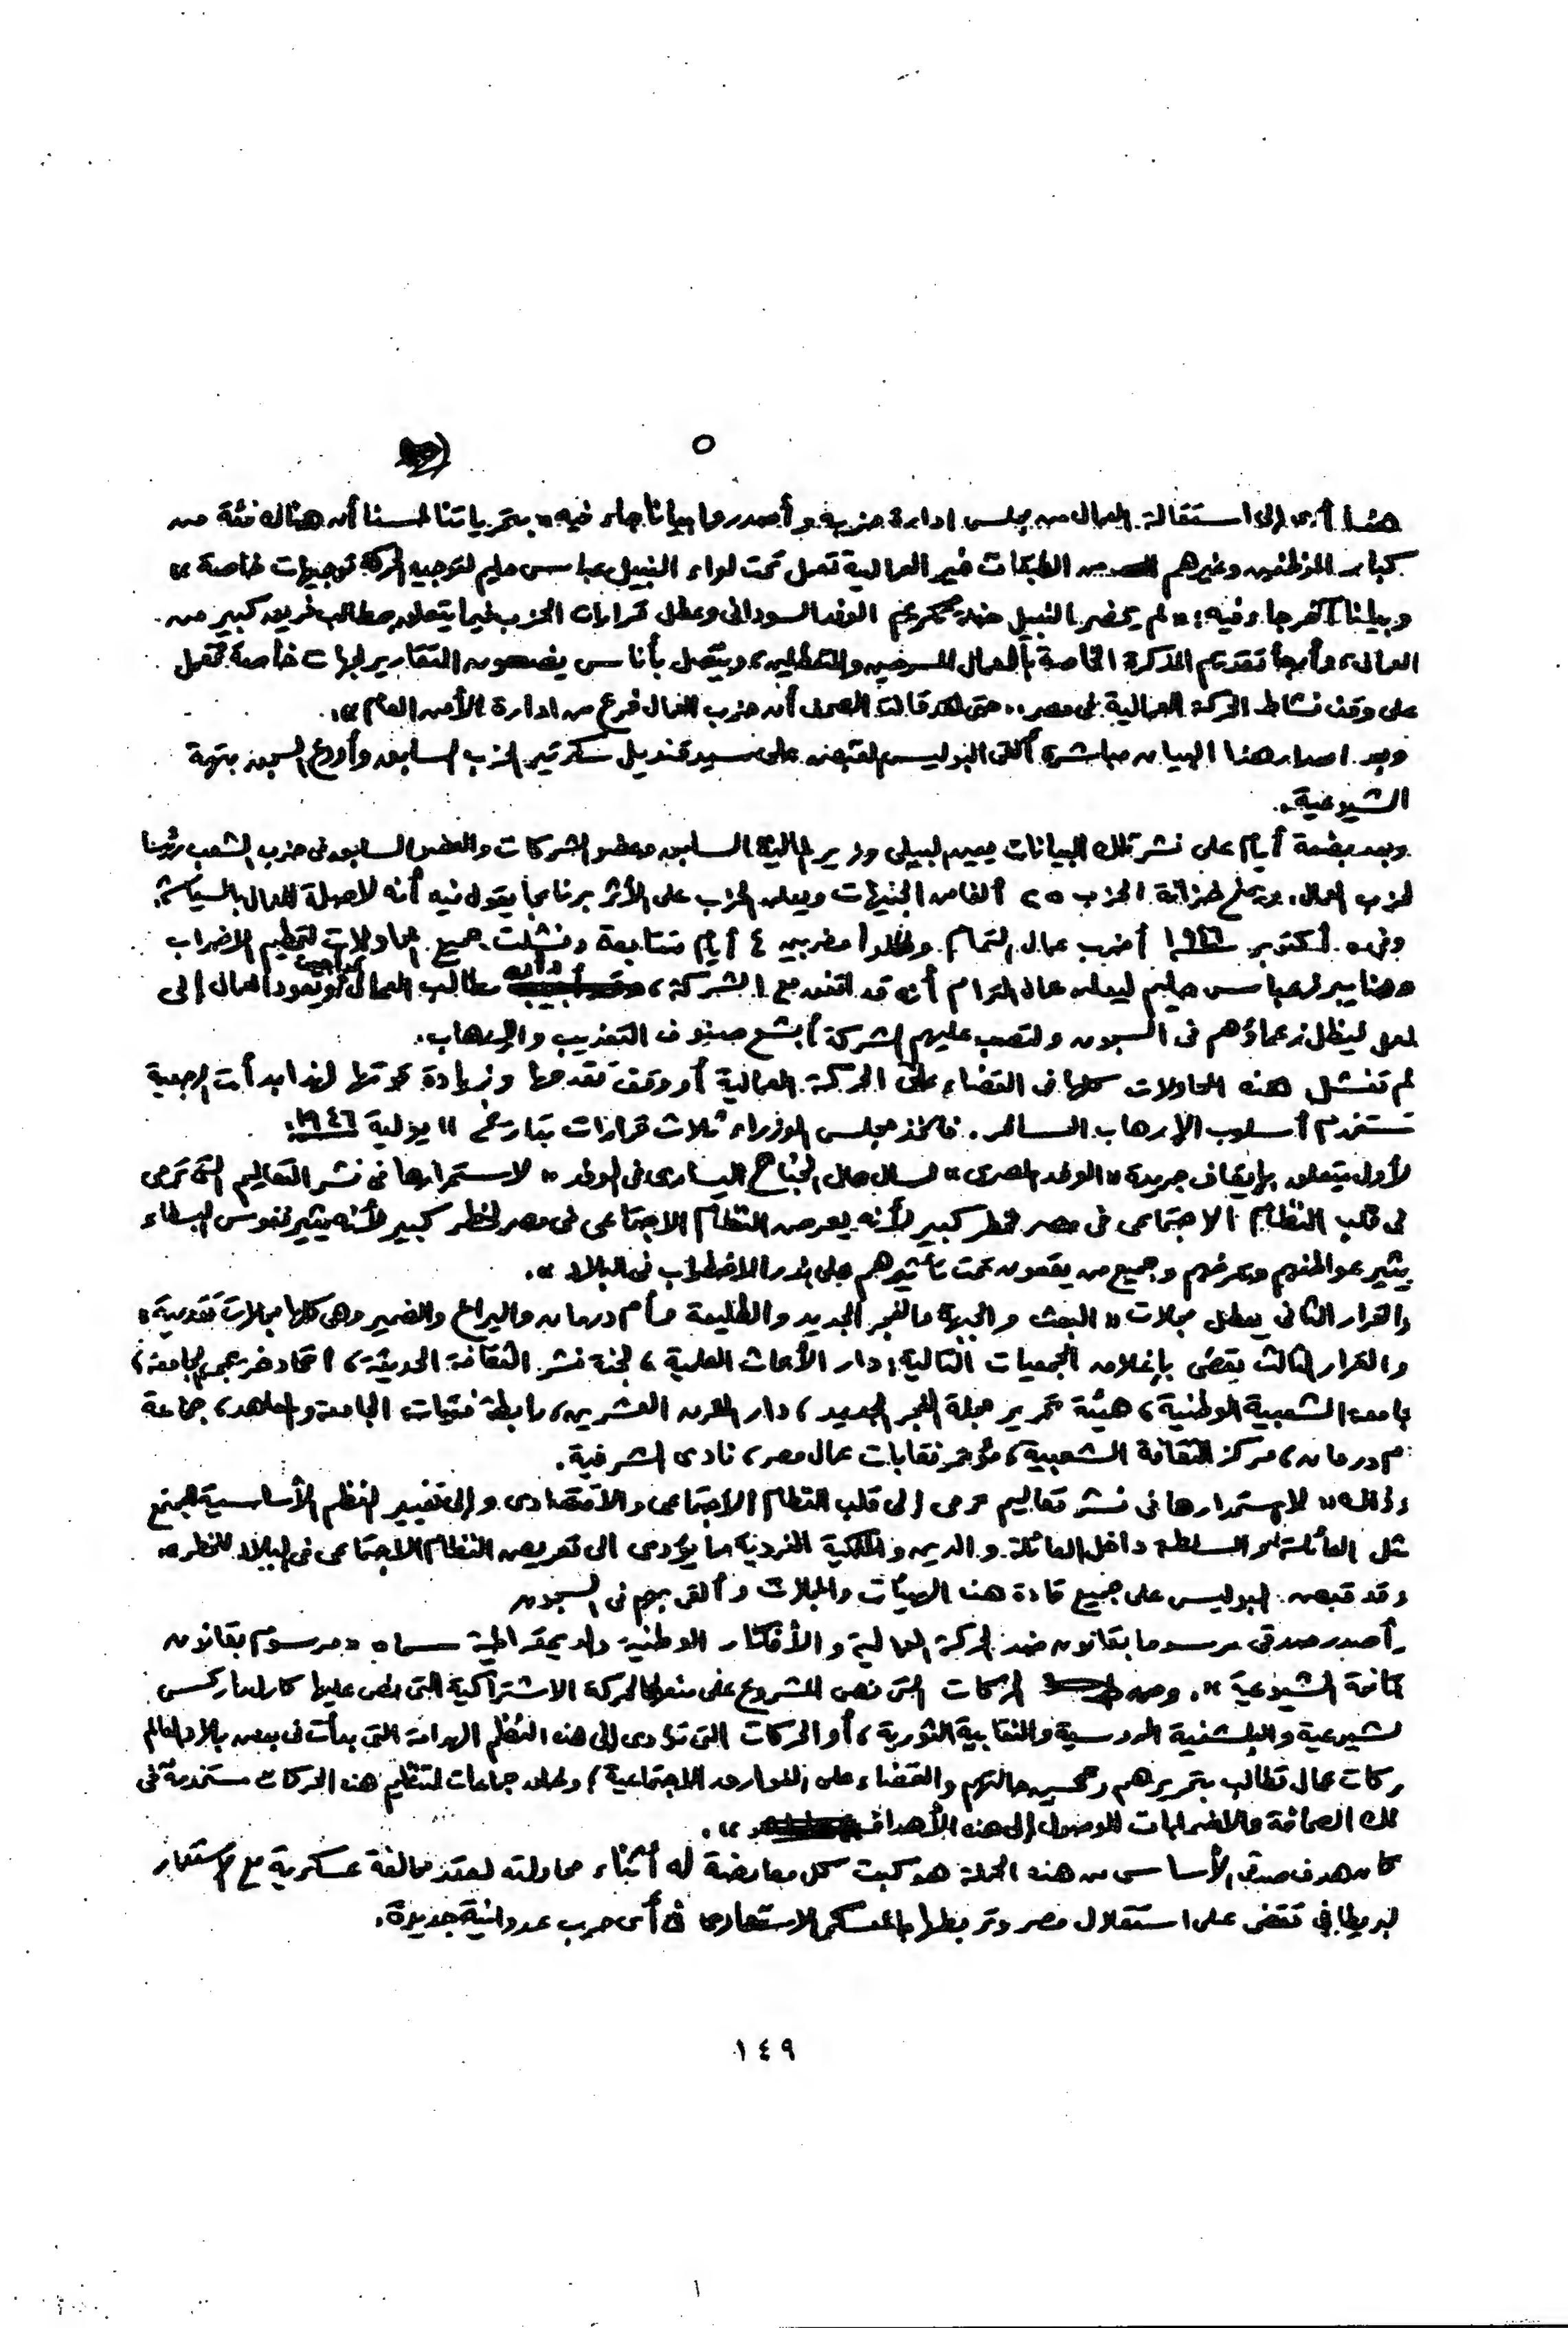 ٥
هذا أدى إلى استقالة العمال من مجلس ادارة حزبه وأصدروا بيانا جاء فيه « بتحرياتنا لمسنا أن هناك فئة من
كبار الموظفين وغيرهم من الطبقات غير العمالية تعمل تحت لواء النبيل عباس حليم لتوجيه الحركة توجيهات خاصة »
وبيانا آخر جاء فيه : « لم يحضر النبيل حفلة تكريم الوفد السودانى وعطل قرارات الحزب فيما يتعلق بمطالب فريق كبير من
العمال، وأرجأ تقديم المذكرة الخاصة بالعمال المسرحين والمتعطلين، ويتصل بأناس يضعون التقارير لجهات خاصة تعمل
على وقف نشاط الحركة العمالية فى مصر .. حتى لقد قالت الصحف أن حزب العمال فرع من ادارة الأمن العام ».
وبعد اصدار هذا البيان مباشرة ألقى البوليس القبض على سيد قنديل سكرتير الحزب السابق وأودع السجن بتهمة
الشيوعية.
وبعد بضعة أيام على نشر تلك البيانات يعين لبيلى وزير المالية السابق وعضو الشركات والعضو السابق فى حزب الشعب رئيسا
لحزب العمال، ويمنح خزانة الحزب ٢٥ ألفا من الجنيهات ويعلن الحزب على الأثر برنامجا يقول فيه أنه لا صلة للعمال بالسياسة.
وفى ٥ أكتوبر ١٩٤٦ أضرب عمال الترام وظلوا مضربين ٤ أيام متتابعة وفشلت جميع محاولات تحطيم الاضراب
وهنا يبرز عباس حليم ليعلن عمال الترام أنه قد اتفق مع الشركة، وأن مطالب العمال أجيبت ويعود العمال إلى
لعمل ليظل زعماؤهم فى السجون ولتصب عليهم الشركة أبشع صنوف التعذيب والإرهاب.
لم تفشل هذه المحاولات كلها فى القضاء على الحركة العمالية أو وقف تقدمها وزيادة قوتها لهذا بدأت الرجعية
تستخدم أسلوب الإرهاب السافر. فاتخذ مجلس الوزراء ثلاث قرارات بتاريخ ١١ يولية ١٩٤٦:
لأول يتعلق بإيقاف جريدة « الوفد المصرى » لسان حال الجناح اليسارى فى الوفد « لاستمرارها فى نشر التعاليم التى ترمى
لى قلب النظام الاجتماعى فى مصر لخطر كبير لأنه يعرض النظام الاجتماعى فى مصر لخطر كبير لأنه يثير نفوس البسطاء
يثير عواطفهم ويعرضهم وجميع من يقعون تحت تأثيرهم على نذر الاضطراب فى البلاد ».
والقرار الثانى يعطل مجلات « البعث والجبهة والفجر الجديد والطليعة وأم درمان واليراع والضمير وهى كلها مجلات تقدمية »
والقرار الثالث يقضى بإغلاق الجمعيات التالية : دار الأبحاث العلمية ، لجنة نشر الثقافة الحديثة ، اتحاد خريجى الجامعة ،
جامعة الشعبية الوطنية ، هيئة تحرير مجلة الفجر الجديد ، دار القرن العشرين، رابطة فتيات الجامعة والمعاهد ، جماعة
م درمان ، مركز الثقافة الشعبية ، مؤتمر نقابات عمال مصر ، نادى الشرقية.
وذلك « لاستمرارها فى نشر تعاليم ترمى إلى قلب النظام الاجتماعى والاقتصادى وإلى تغيير النظم الأساسية للمجتمع
مثل العائلة أو السلطة داخل العائلة والدين والملكية الفردية مما يؤدى الى تعريض النظام الاجتماعى فى البلاد للخطر »
وقد قبض البوليس على جميع قادة هذه الهيئات والمجلات وألقى بهم فى السجون
أصدر صدقى مرسوما بقانون ضد الحركة العمالية والأفكار الوطنية والديمقراطية سماه « مرسوم بقانون
كافحة الشيوعية ». ومن الحركات التى نص المشروع على منعها الحركة الاشتراكية التى نص عليها كارل ماركس
لشيوعية والبلشفية الروسية والنقابية الثورية ، أو الحركات التى تؤدى إلى هذه النظم الهدامة التى بدأت فى بعض بلاد العالم
ركات عمال تطالب بتحريرهم وتحسين حالتهم والقضاء على الفوارق الاجتماعية ؛ ولجان جماعات لتنظيم هذه الحركات مستخدمة فى
لك الصحافة والاضرابات للوصول إلى هذه الأهداف ».
كان هدف صدقى الأساسى من هذه الحملة هو كبت كل معارضة له أثناء محاولته لعقد محالفة عسكرية مع الاستعمار
لبريطانى تقضى على استقلال مصر وتربطها بالمعسكر الاستعمارى فى أى حرب عدوانية جديدة.
١٤٩